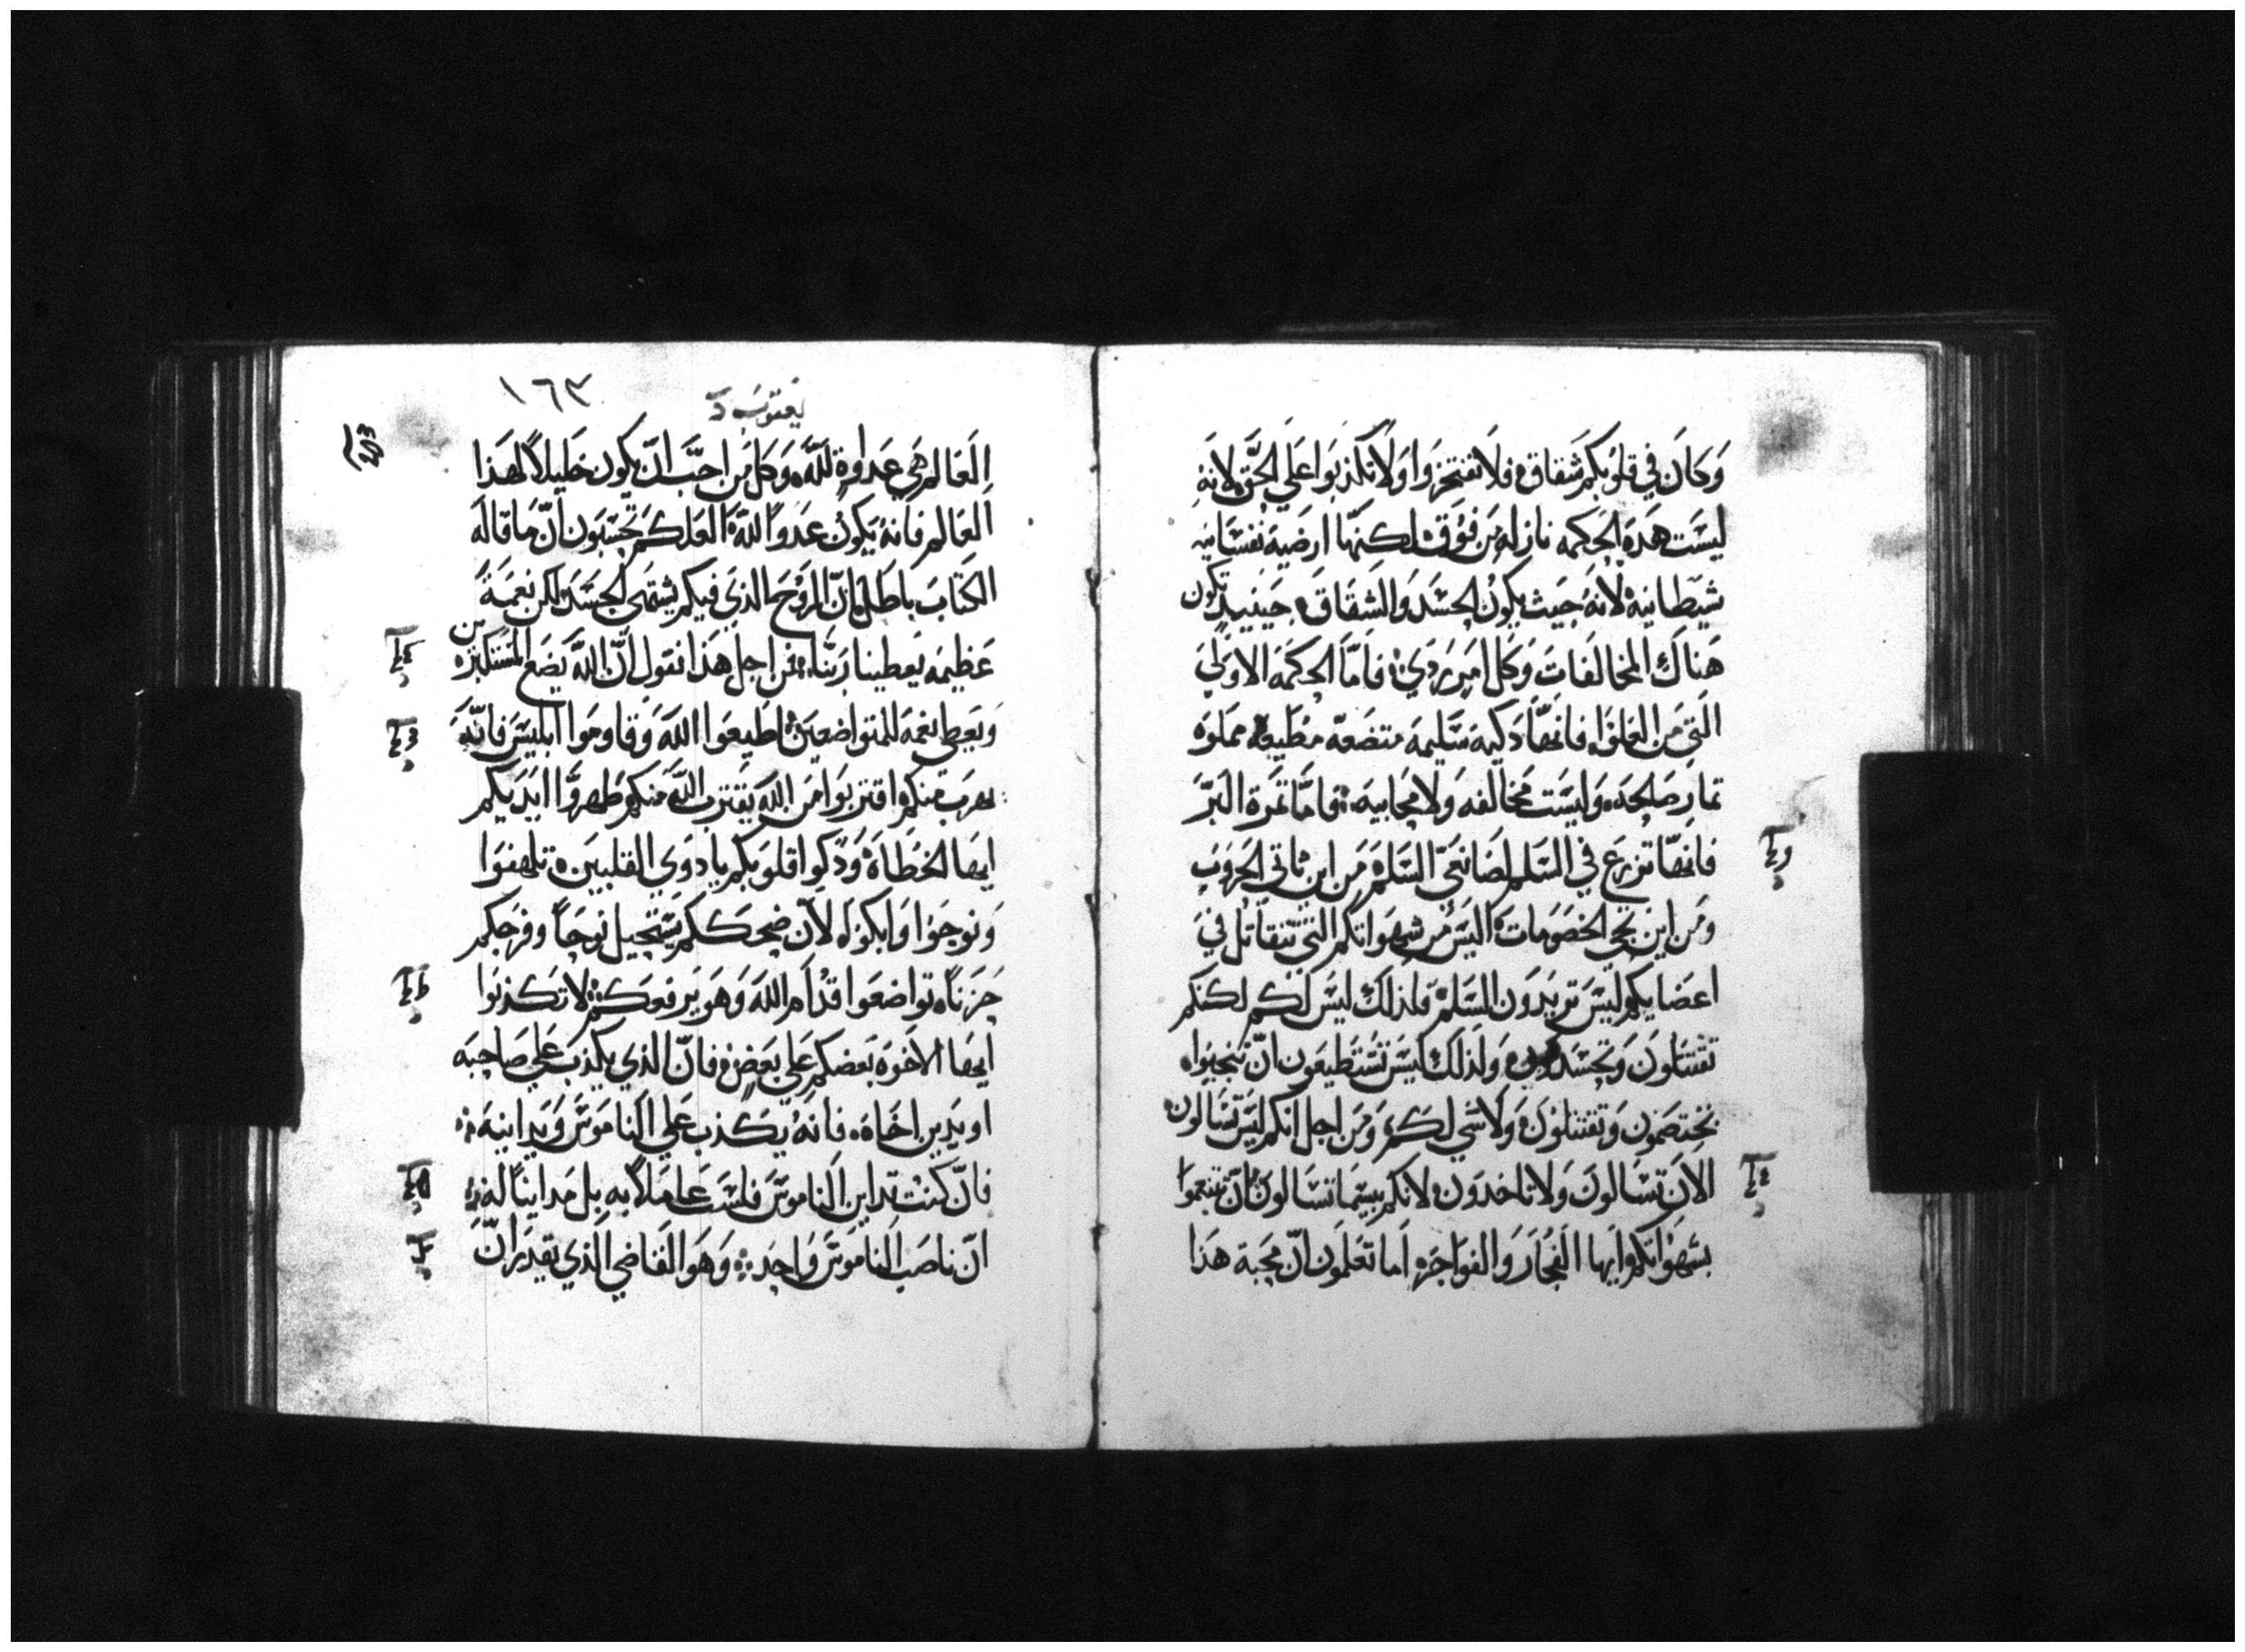 وَكَانَ في قلوبكم شقاق فلا تفتخروا ولا تكذبوا علي الحق لانه
ليست هذه الحكمه نازله من فوق لكنها ارضية نفسانيه
شيطانيه لانه حيث يكون الحسد والشقاق حينيد تكون
هناك المخالفات وكل امر ردي فاما الحكمه الاولي
التي من العلو فانها دكيه سليمه متضعه مطيعه مملوه
تمار صالحه وليست مخالفه ولا محابيه فاما تمرة البر
فانها تزرع في السلم لصانعي السلم من اين تاتي الحروب
ومن اين تجي الخصومات اليس من شهواتكم التي تتقاتل في
اعضايكم ليس تريدون السلم فلذلك ليس لكم لكنكم
تقتتلون وتحسدون ولذلك ليس تستطيعون ان تنجيوا
تختصمون وتقتتلون ولا شي لكم ومن اجل انكم ليس تسالون
الان تسالون ولا تاخدون لانكم بيسما تسالون ان تتنعموا
بشهواتكم ايها الفجار والفواجره اما تعلمون ان محبة هذا
يعقوب د
١٦٣
العالم هي عداوة لله وكل من احب ان يكون خليلاً لهذا
العالم فانه يكون عدواً لله العلكم تحسبون ان ما قاله
الكتاب باطل ان الروح الذي فيكم يشتهي الحسد لكن نعمة
عظيمه يعطينا ربنا فمن اجل هذا نقول ان الله يضع المستكبرين
ويعطي نعمه للمتواضعين اطيعوا الله وقاوموا ابليس فانه
يهرب منكم اقتربوا من الله يقترب الله منكم طهروا ايديكم
ايها الخطاة ودكوا قلوبكم يا دوي القلبين تلهفوا
ونوحوا وابكوا لان ضحككم يستحيل نوحاً وفرحكم
حزناً تواضعوا قدام الله وهو يرفعكم لا تكذبوا
ايها الاخوه بعضكم علي بعض فان الذي يكذب علي صاحبه
او يدين اخاه فانه يكذب علي الناموس ويداينه
فان كنت تداين الناموس فلست عاملاً به بل مدايناً له
ان ناصب الناموس واحد وهو القاضي الذي يقدر ان